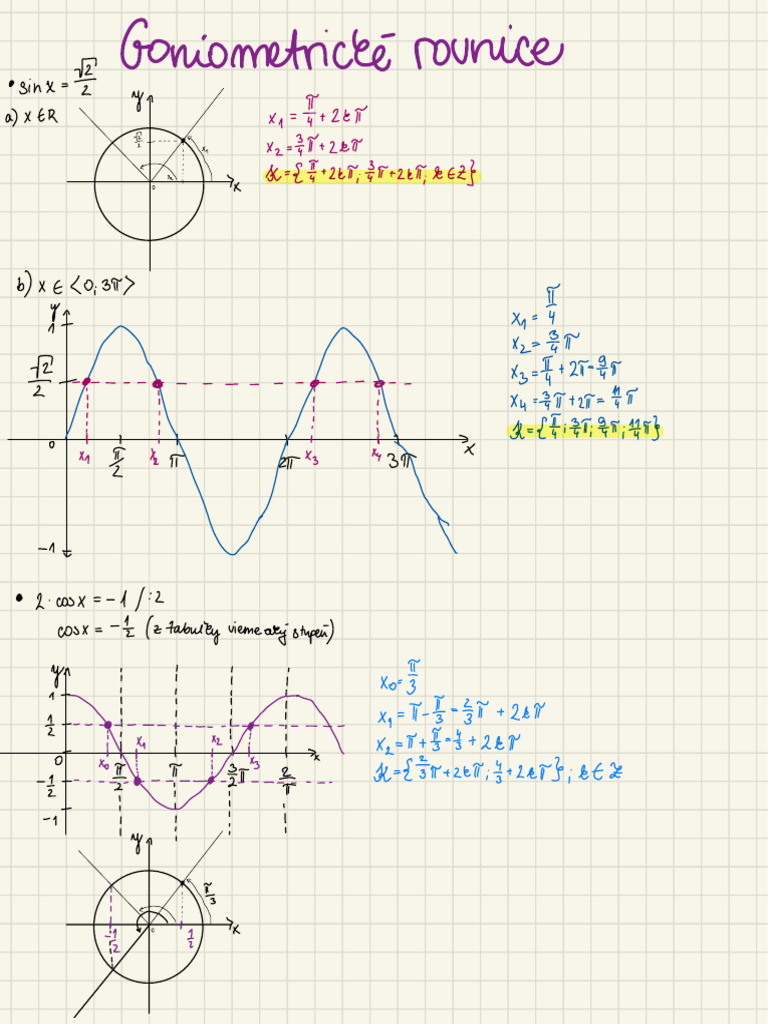 Goniometrické rovnice
• sin x = √2/2
a) x ∈ R
y
√2/2
x₁
x₂
0
x
x₁ = π/4 + 2kπ
x₂ = 3/4π + 2kπ
K = {π/4 + 2kπ; 3/4π + 2kπ, k ∈ Z}
b) x ∈ <0; 3π>
y
1
√2/2
0 x₁ π/2 x₂ π 2π x₃ x₄ 3π x
-1
x₁ = π/4
x₂ = 3/4 π
x₃ = π/4 + 2π = 9/4 π
x₄ = 3/4π + 2π = 11/4 π
K = {π/4; 3/4π; 9/4π; 11/4π}
• 2 · cos x = -1 /:2
cos x = -1/2 (z tabuľky vieme aký stupeň)
y
1
1/2
x₁ x₂
0 x₀ π/2 π 3/2π x₃ 2/π x
-1/2
-1
x₀ = π/3
x₁ = π - π/3 = 2/3π + 2kπ
x₂ = π + π/3 = 4/3 + 2kπ
K = {2/3π + 2kπ; 4/3 + 2kπ}; k ∈ Z
y
π/3
0
-1/2 1/2 x